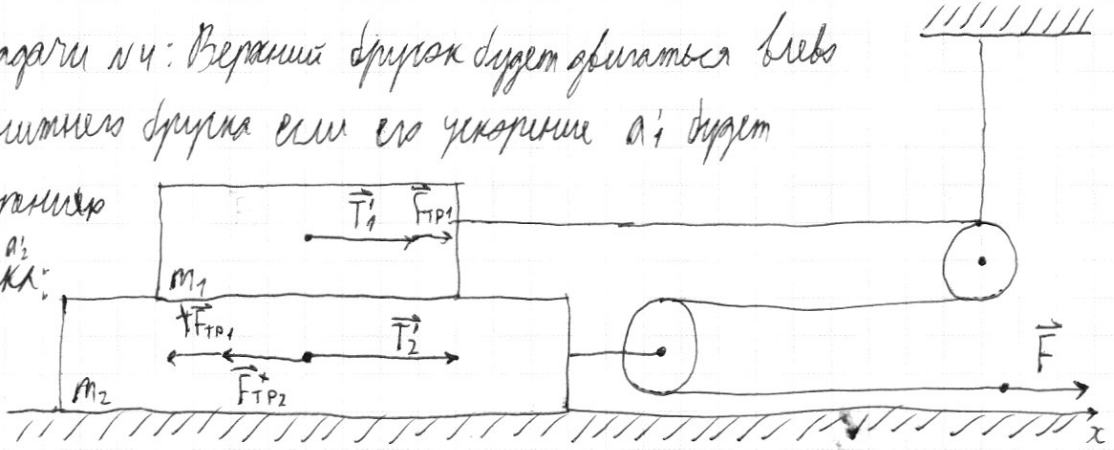 адачи №4: Верхний брусок будет двигаться влево
нижнего бруска если его ускорение a'₁ будет
a'₂
T⃗'₁ F⃗тр1
m₁
F⃗тр1 T⃗'₂
F⃗
m₂ F⃗тр2
x